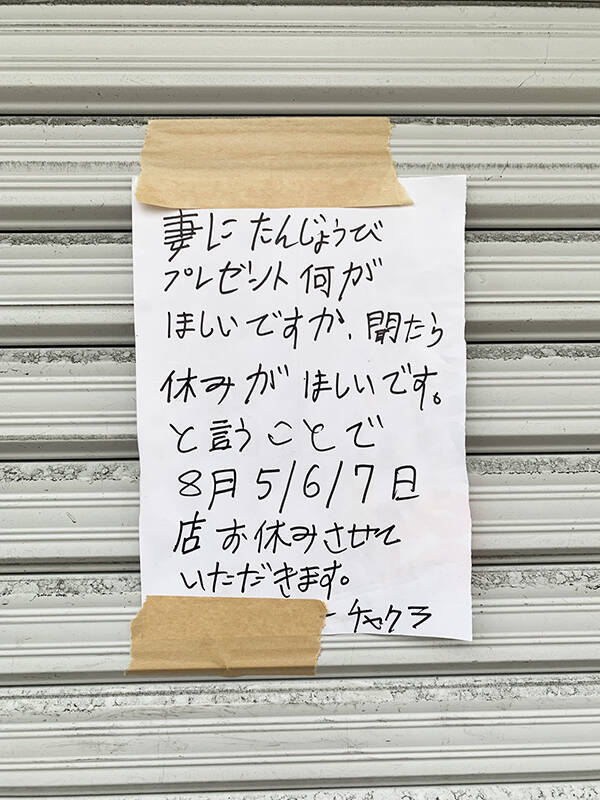 妻に たんじょうび
プレゼント 何が
ほしいですか、聞たら
休みが ほしいです。
と言うことで
8月 5/6/7 日
店 お休みさせて
いただきます。
ーチャクラ